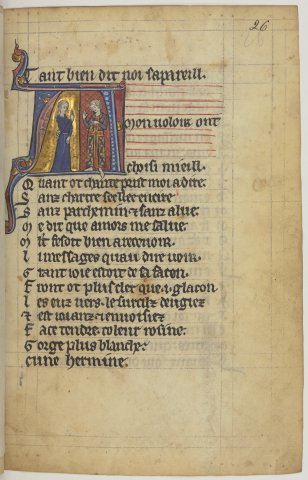 26
Tant bien dit noi sapareill.
A mon voloir ont
choisi mieill.
Quant ot chante prist moi a dire:
Sanz chartre seeller en cire
Sanz parchemin & sanz alue.
Me dist que amors me salue.
Il fesoit bien a recevoir.
Li messages qua dire voir.
Grant ioie estoit de sa facon.
Front ot plus cler que .i. glacon
Les eux vers. le surcilz deugiez
& est ioianz & envoisiez
Face tendre. colour rosine.
Gorge plus blanche.
cune hermine.